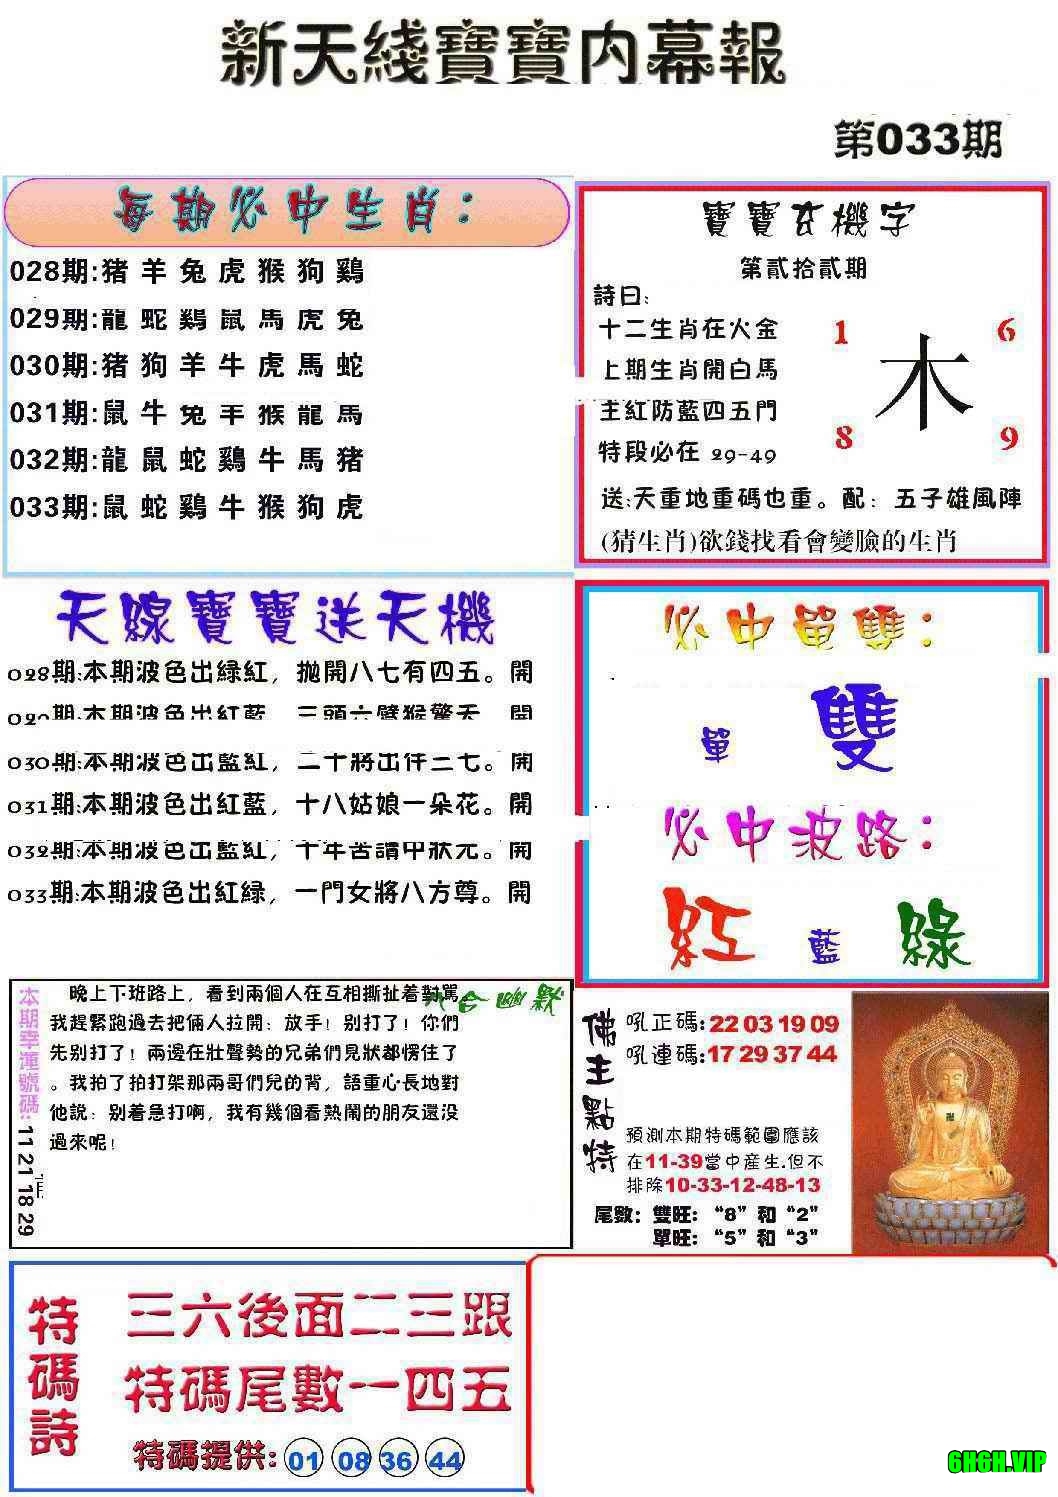 新天綫寶寶内幕報
第033期
每期必中生肖：
028期:猪羊兔虎猴狗鷄
029期:龍蛇鷄鼠馬虎兔
030期:猪狗羊牛虎馬蛇
031期:鼠牛兔羊猴龍馬
032期:龍鼠蛇鷄牛馬猪
033期:鼠蛇鷄牛猴狗虎
寶寶玄機字
第貳拾貳期
詩曰:
十二生肖在火金
上期生肖開白馬
主紅防藍四五門
特段必在 29-49
1
6
木
8
9
送:天重地重碼也重。配：五子雄風陣
(猜生肖)欲錢找看會變臉的生肖
天線寶寶送天機
028期:本期波色出緑紅，抛開八七有四五。開
029期:本期波色出紅藍，三頭六臂猴驚天。開
030期:本期波色出藍紅，二十將出伴三七。開
031期:本期波色出紅藍，十八姑娘一朵花。開
032期:本期波色出藍紅，十年苦讀中狀元。開
033期:本期波色出紅緑，一門女將八方尊。開
必中單雙：
單 雙
必中波路：
紅 藍 綠
本期幸運號碼: 11 21 18 29
六合幽默
晚上下班路上，看到兩個人在互相撕扯着對駡。
我趕緊跑過去把倆人拉開：放手！别打了！你們
先别打了！兩邊在壯聲勢的兄弟們見狀都愣住了
。我拍了拍打架那兩哥們兒的背，語重心長地對
他説：别着急打啊，我有幾個看熱鬧的朋友還没
過來呢！
佛主點特
吼正碼:22 03 19 09
吼連碼:17 29 37 44
預測本期特碼範圍應該
在11-39當中産生.但不
排除10-33-12-48-13
尾數：雙旺：“8”和“2”
單旺：“5”和“3”
特碼詩
三六後面二三跟
特碼尾數一四五
特碼提供: 01 08 36 44
6H6H.VIP